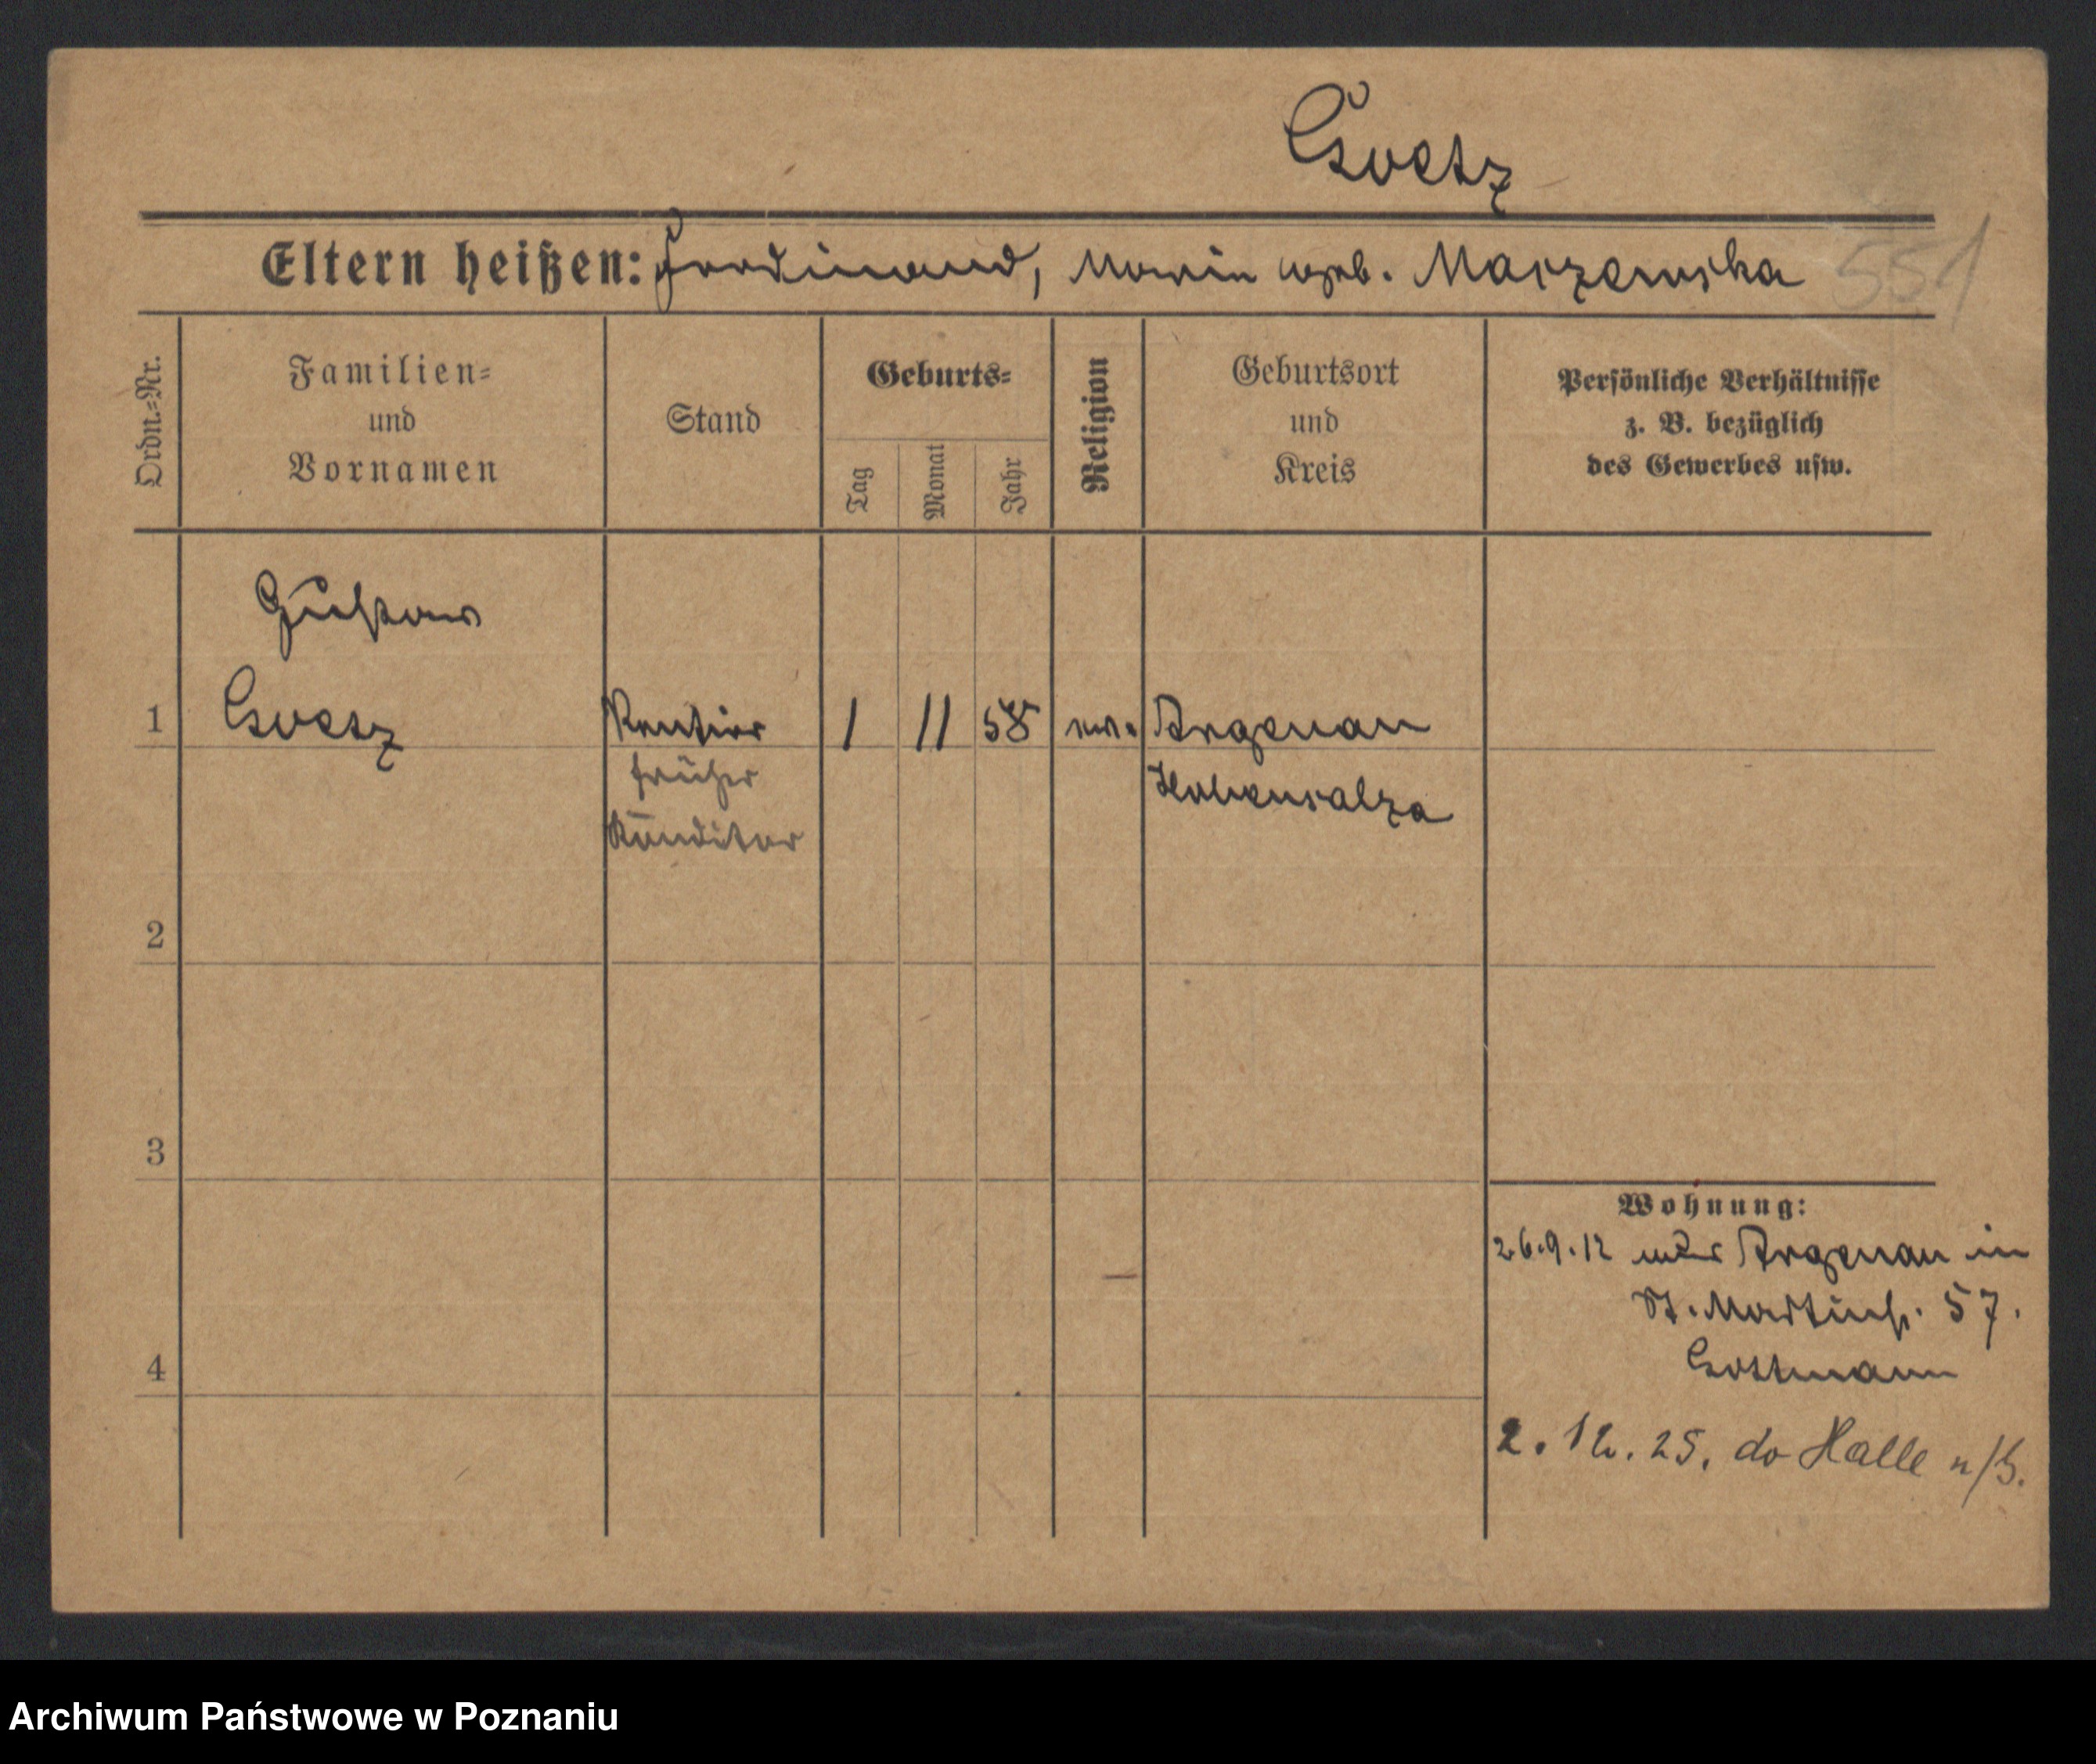 Goetz
Eltern heißen: Ferdinand, Maria geb. Marzewska
551
Ordn.-Nr.
Familien-
und
Vornamen
Stand
Geburts-
Tag
Monat
Jahr
Religion
Geburtsort
und
Kreis
Persönliche Verhältnisse
z. B. bezüglich
des Gewerbes usw.
Gustav
1 Goetz Rentier 1 11 58 ev. Argenau
früher Hohensalza
Konditor
2
3
Wohnung:
26.9.12 aus Argenau in
St. Martinst. 57.
4
2.12.25. do Halle n/S.
Archiwum Państwowe w Poznaniu